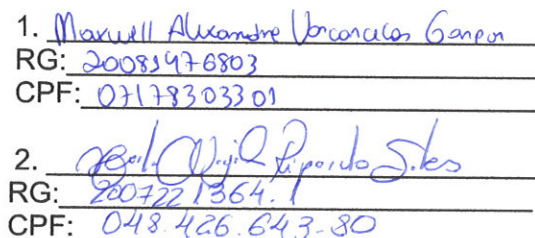 1. Maxwell Alexandre Vasconcelos
RG: 20081976803
CPF: 07178303301
2. Silva
RG: 2007221364.1
CPF: 048.426.643-80